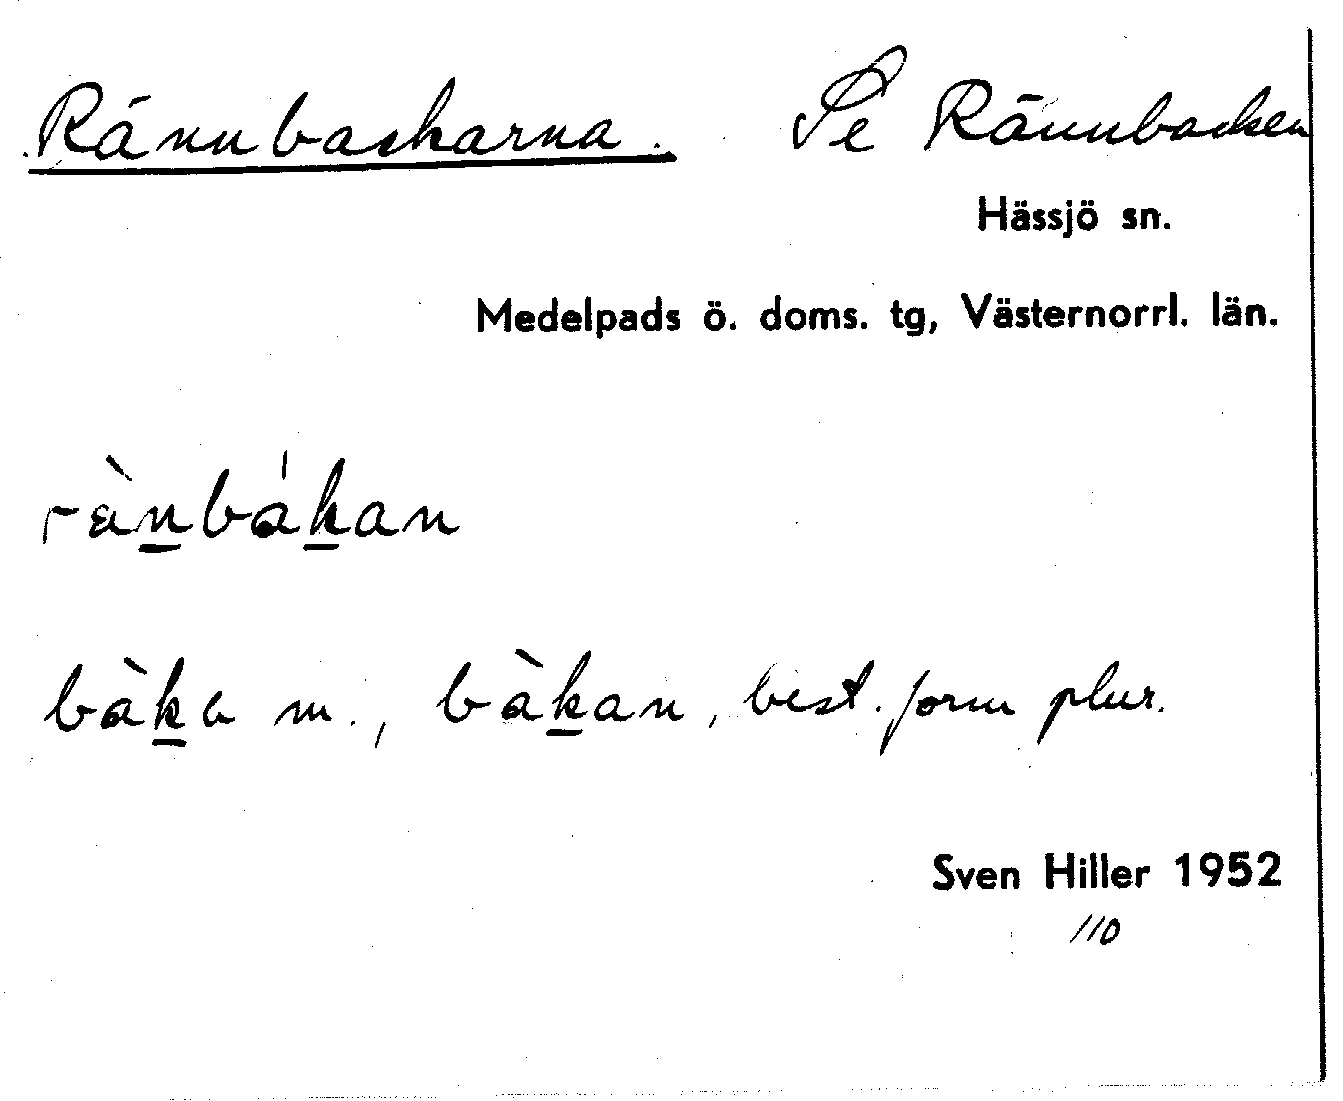 Rännbackarna. Se Rännbacken
Hässjö sn.
Medelpads ö. doms. tg, Västernorrl. län.
rän̲bák̲an
bàk̲a m., bàk̲an, best. form plur.
Sven Hiller 1952
110